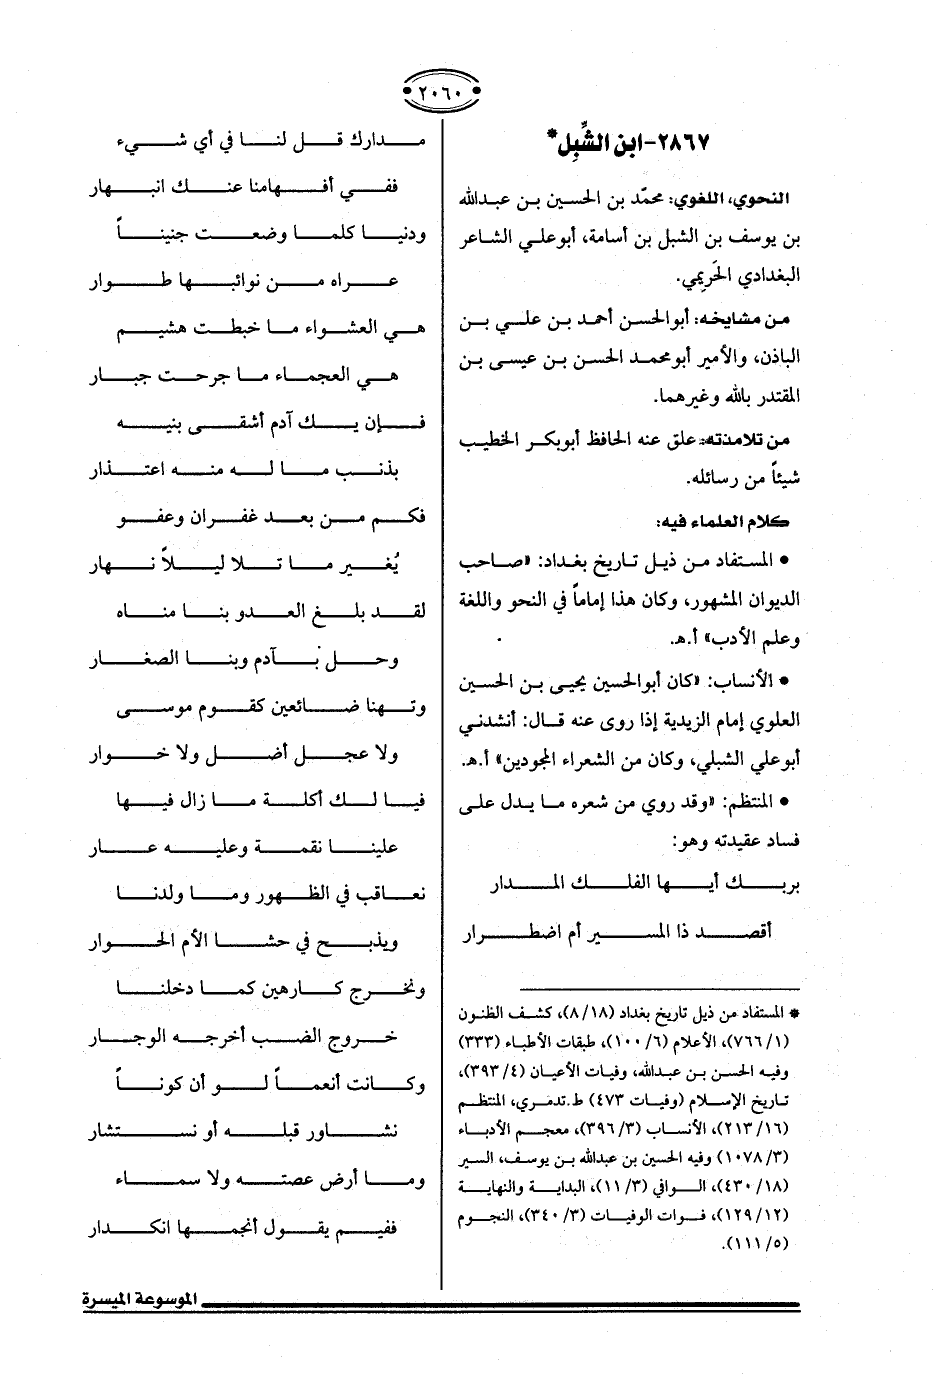 ٢٠٦٠
٢٨٦٧-ابن الشِّبِل*
النحوي، اللغوي: محمّد بن الحسين بن عبدالله
بن يوسف بن الشبل بن أسامة، أبوعلي الشاعر
البغدادي الحَرِيمي.
من مشايخه: أبوالحسن أحمد بن علي بن
الباذن، والأمير أبومحمد الحسن بن عيسى بن
المقتدر بالله وغيرهما.
من تلامذته: علق عنه الحافظ أبوبكر الخطيب
شيئاً من رسائله.
كلام العلماء فيه:
• المستفاد من ذيل تاريخ بغداد: «صاحب
الديوان المشهور، وكان هذا إماماً في النحو واللغة
وعلم الأدب» أ.هـ.
• الأنساب: «كان أبوالحسين يحيى بن الحسين
العلوي إمام الزيدية إذا روى عنه قال: أنشدني
أبوعلي الشبلي، وكان من الشعراء المجودين» أ.هـ.
• المنتظم: «وقد روي من شعره ما يدل على
فساد عقيدته وهو:
بربك أيها الفلك المدار
أقصد ذا المسير أم اضطرار
* المستفاد من ذيل تاريخ بغداد (٨/١٨)، كشف الظنون
(٧٦٦/١)، الأعلام (١٠٠/٦)، طبقات الأطباء (٣٣٣)
وفيه الحسن بن عبدالله، وفيات الأعيان (٣٩٣/٤)،
تاريخ الإسلام (وفيات ٤٧٣) ط.تدمري، المنتظم
(٢١٣/١٦)، الأنساب (٣٩٦/٣)، معجم الأدباء
(١٠٧٨/٣) وفيه الحسين بن عبدالله بن يوسف، السير
(٤٣٠/١٨)، الوافي (١١/٣)، البداية والنهاية
(١٢٩/١٢)، فوات الوفيات (٣٤٠/٣)، النجوم
(١١١/٥).
مدارك قل لنا في أي شيء
ففي أفهامنا عنك انبهار
ودنيا كلما وضعت جنيناً
عراه من نوائبها طوار
هي العشواء ما خبطت هشيم
هي العجماء ما جرحت جبار
فإن يك آدم أشقى بنيه
بذنب ما له منه اعتذار
فكم من بعد غفران وعفو
يُغير ما تلا ليلاً نهار
لقد بلغ العدو بنا مناه
وحل بآدم وبنا الصغار
وتهنا ضائعين كقوم موسى
ولا عجل أضل ولا خوار
فيا لك أكلة ما زال فيها
علينا نقمة وعليه عار
نعاقب في الظهور وما ولدنا
ويذبح في حشا الأم الحوار
ونخرج كارهين كما دخلنا
خروج الضب أخرجه الوجار
وكانت أنعماً لو أن كوناً
نشاور قبله أو نستشار
وما أرض عصته ولا سماء
ففيم يقول أنجمها انكدار
الموسوعة الميسرة